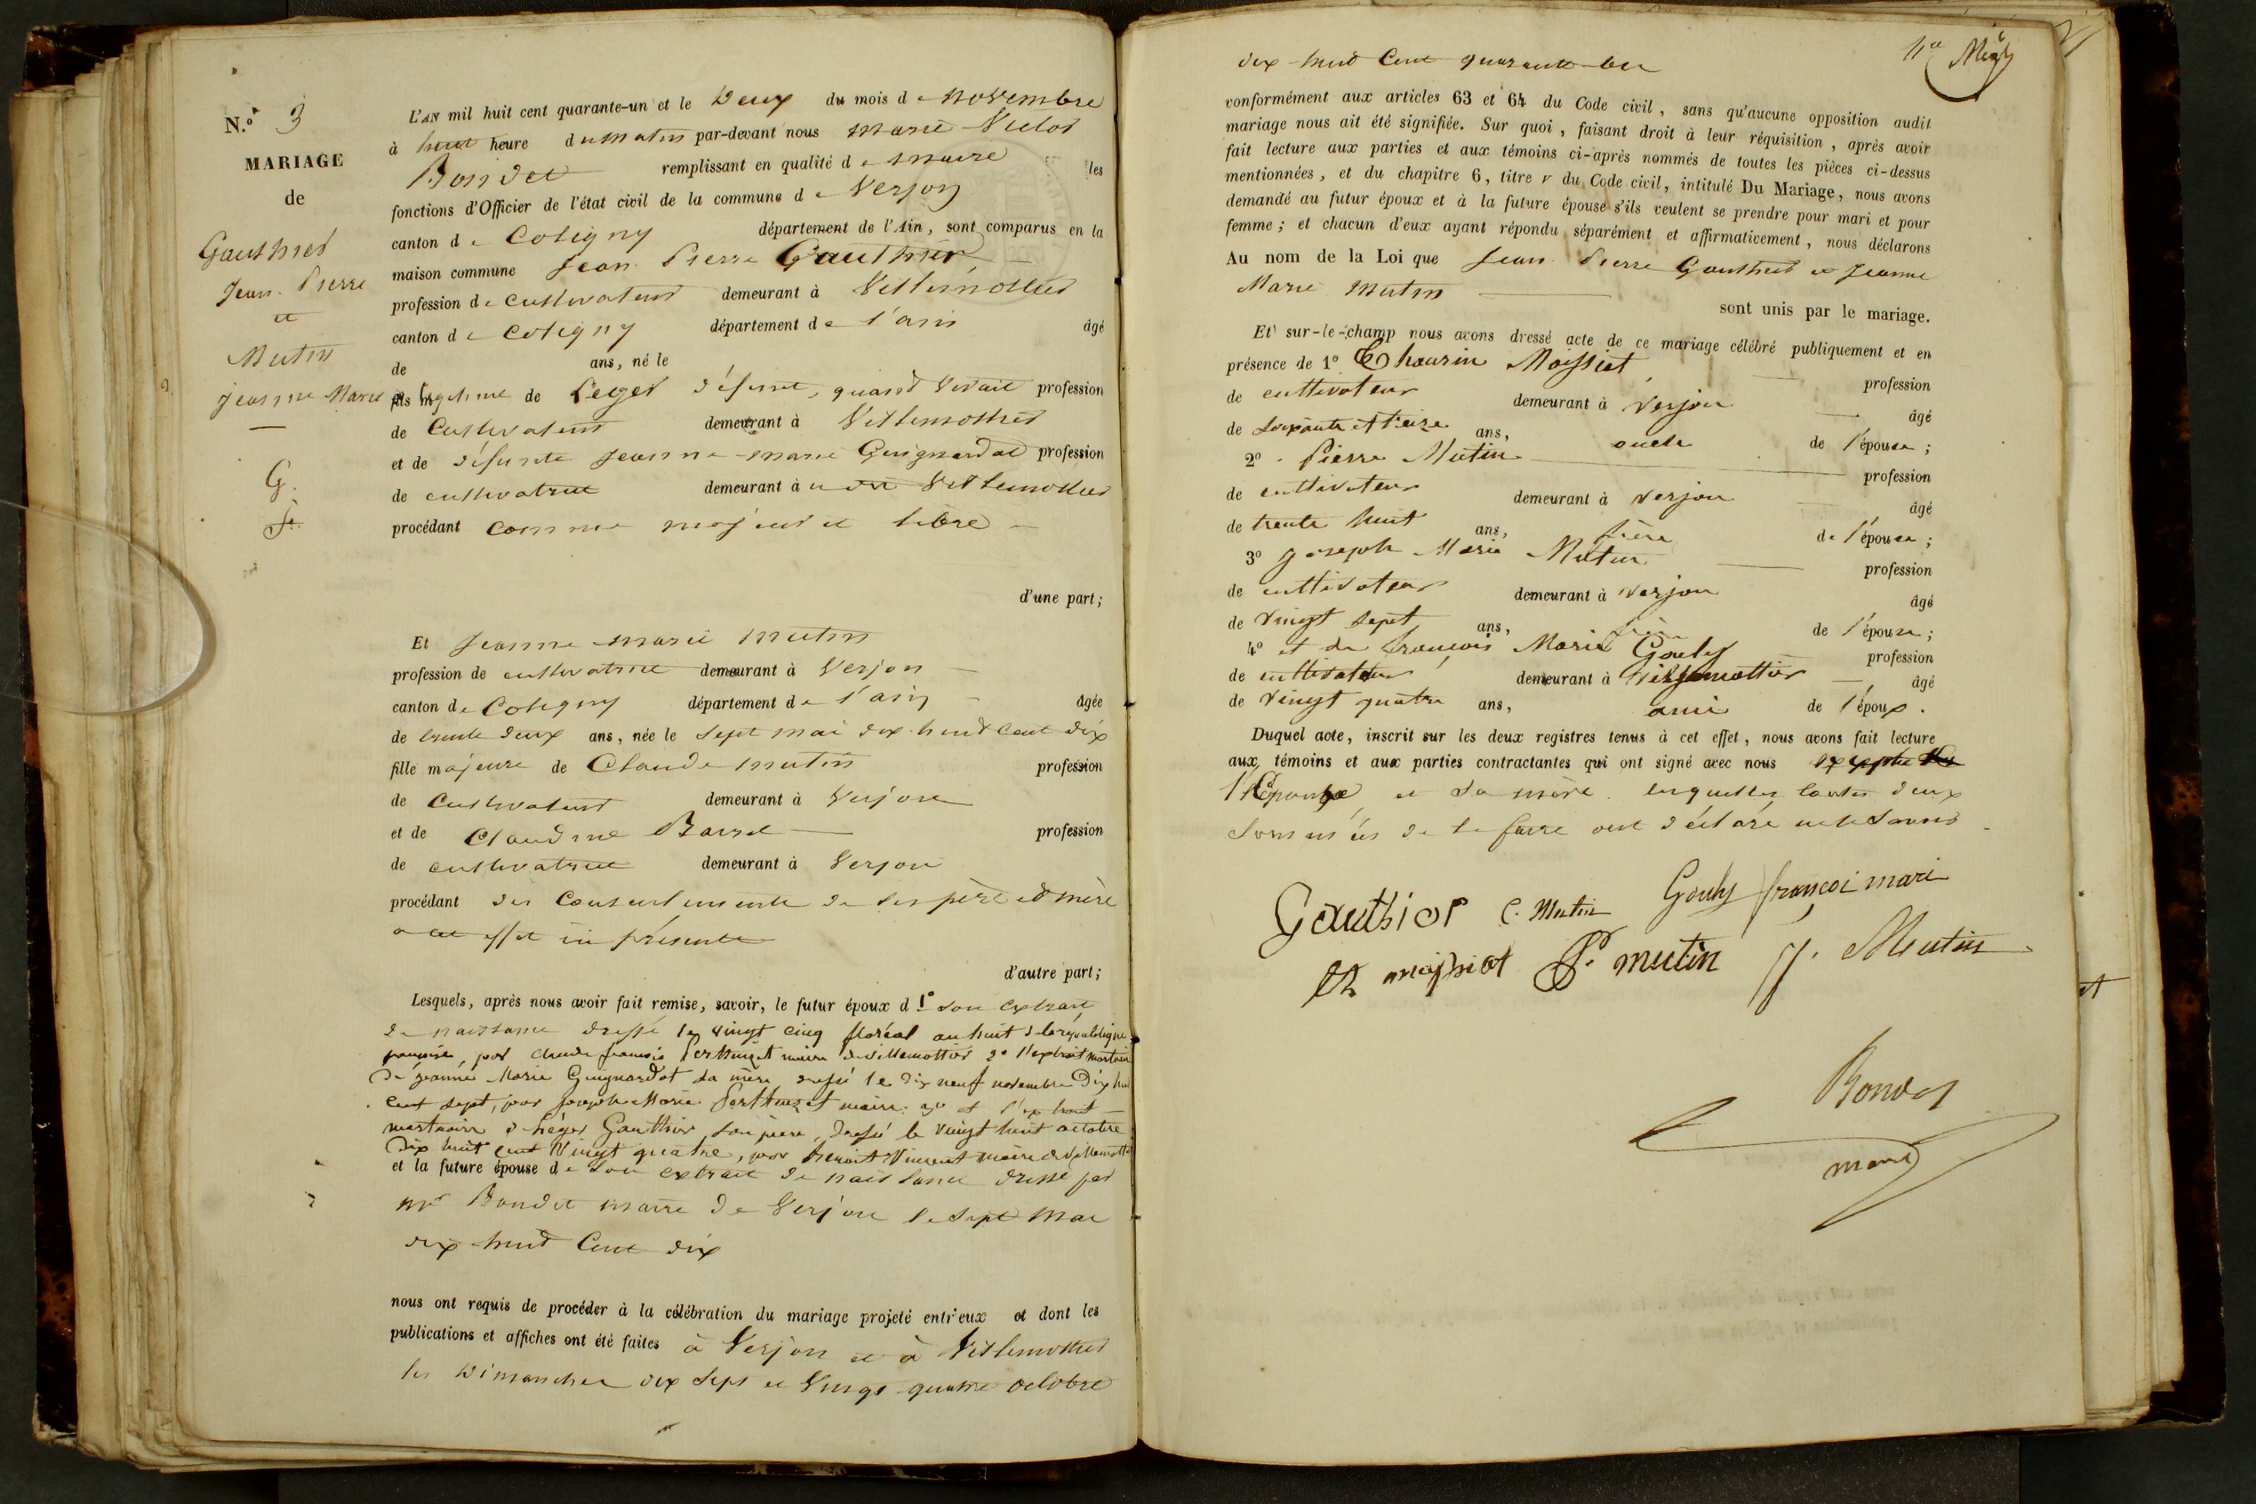 N.º 3
MARIAGE
de
Gauthier
Jean Pierre
et
Mutin
Jeanne Marie
G.
L'AN mil huit cent quarante-un et le Deux du mois de novembre
à huit heure du matin par-devant nous marie Victor
Bondet remplissant en qualité de maire les
fonctions d'Officier de l'état civil de la commune de Verjon
canton de Coligny département de l'Ain, sont comparus en la
maison commune Jean Pierre Gauthier
profession de cultivateur demeurant à Villemottier
canton de Coligny département de l'ain âgé
de ans, né le
fils légitime de Léger défunt, quand vivait profession
de Cultivateur demeurant à Villemottier
et de défunte Jeanne-marie Guignardat profession
de cultivatrice demeurant à Villemottier
procédant comme majeur et libre
d'une part;
Et Jeanne marie mutin
profession de cultivatrice demeurant à Verjon
canton de Coligny département de l'ain âgée
de trente deux ans, née le sept mai dix huit cent dix
fille majeure de Claude mutin profession
de Cultivateur demeurant à Verjon
et de Claudine profession
de cultivatrice demeurant à Verjon
procédant du Consentement de ses père et mère
a cet effet ici présents
d'autre part;
Lesquels, après nous avoir fait remise, savoir, le futur époux d 1º son extrait
de naissance dressé le vingt cinq floréal an huit de la république
française, par Claude françois Perthuizet maire de Villemottier 2º l'extrait mortuaire
de jeanne Marie Guignardat sa mère dressé le dix neuf novembre Dix huit
cent sept, par joseph Marie Perthuizet maire. 3º et l'extrait
mortuaire de Léger Gauthier son père, dressé le vingt huit octobre
Dix huit cent Vingt quatre, par Benoit Vincent maire de Villemottier
et la future épouse de son extrait de naissance dressé par
Mr Bondet maire de Verjon le sept Mai
dix huit Cent dix
nous ont requis de procéder à la célébration du mariage projeté entr'eux et dont les
publications et affiches ont été faites à Verjon et à Villemottier
les Dimanches dix sept et vingt quatre octobre
dix huit Cent quarante un
conformément aux articles 63 et 64 du Code civil, sans qu'aucune opposition audit
mariage nous ait été signifiée. Sur quoi, faisant droit à leur réquisition, après avoir
fait lecture aux parties et aux témoins ci-après nommés de toutes les pièces ci-dessus
mentionnées, et du chapitre 6, titre v du Code civil, intitulé Du Mariage, nous avons
demandé au futur époux et à la future épouse s'ils veulent se prendre pour mari et pour
femme; et chacun d'eux ayant répondu séparément et affirmativement, nous déclarons
Au nom de la Loi que Jean Pierre Gauthier et Jeanne
Marie Mutin
sont unis par le mariage.
Et sur-le-champ nous avons dressé acte de ce mariage célébré publiquement et en
présence de 1º Moissiat profession
de cultivateur demeurant à Verjon âgé
de soixante et treize ans, oncle de l'épouse;
2º Pierre Mutin profession
de cultivateur demeurant à Verjon âgé
de trente huit ans, frère de l'épouse;
3º Joseph Marie Mutin profession
de cultivateur demeurant à Verjon âgé
de vingt sept ans, frère de l'épouse;
4º et de françois Marie Gouly profession
de cultivateur demeurant à Villemottier âgé
de vingt quatre ans, ami de l'époux.
Duquel acte, inscrit sur les deux registres tenus à cet effet, nous avons fait lecture
aux témoins et aux parties contractantes qui ont signé avec nous
l'Epouse et sa mère lesquelles toutes deux
de le faire ont déclaré ne le savoir
Gauthier C. Mutin Gouly françoi marie
moissiat P. mutin J. Mutin
Bondet
maire